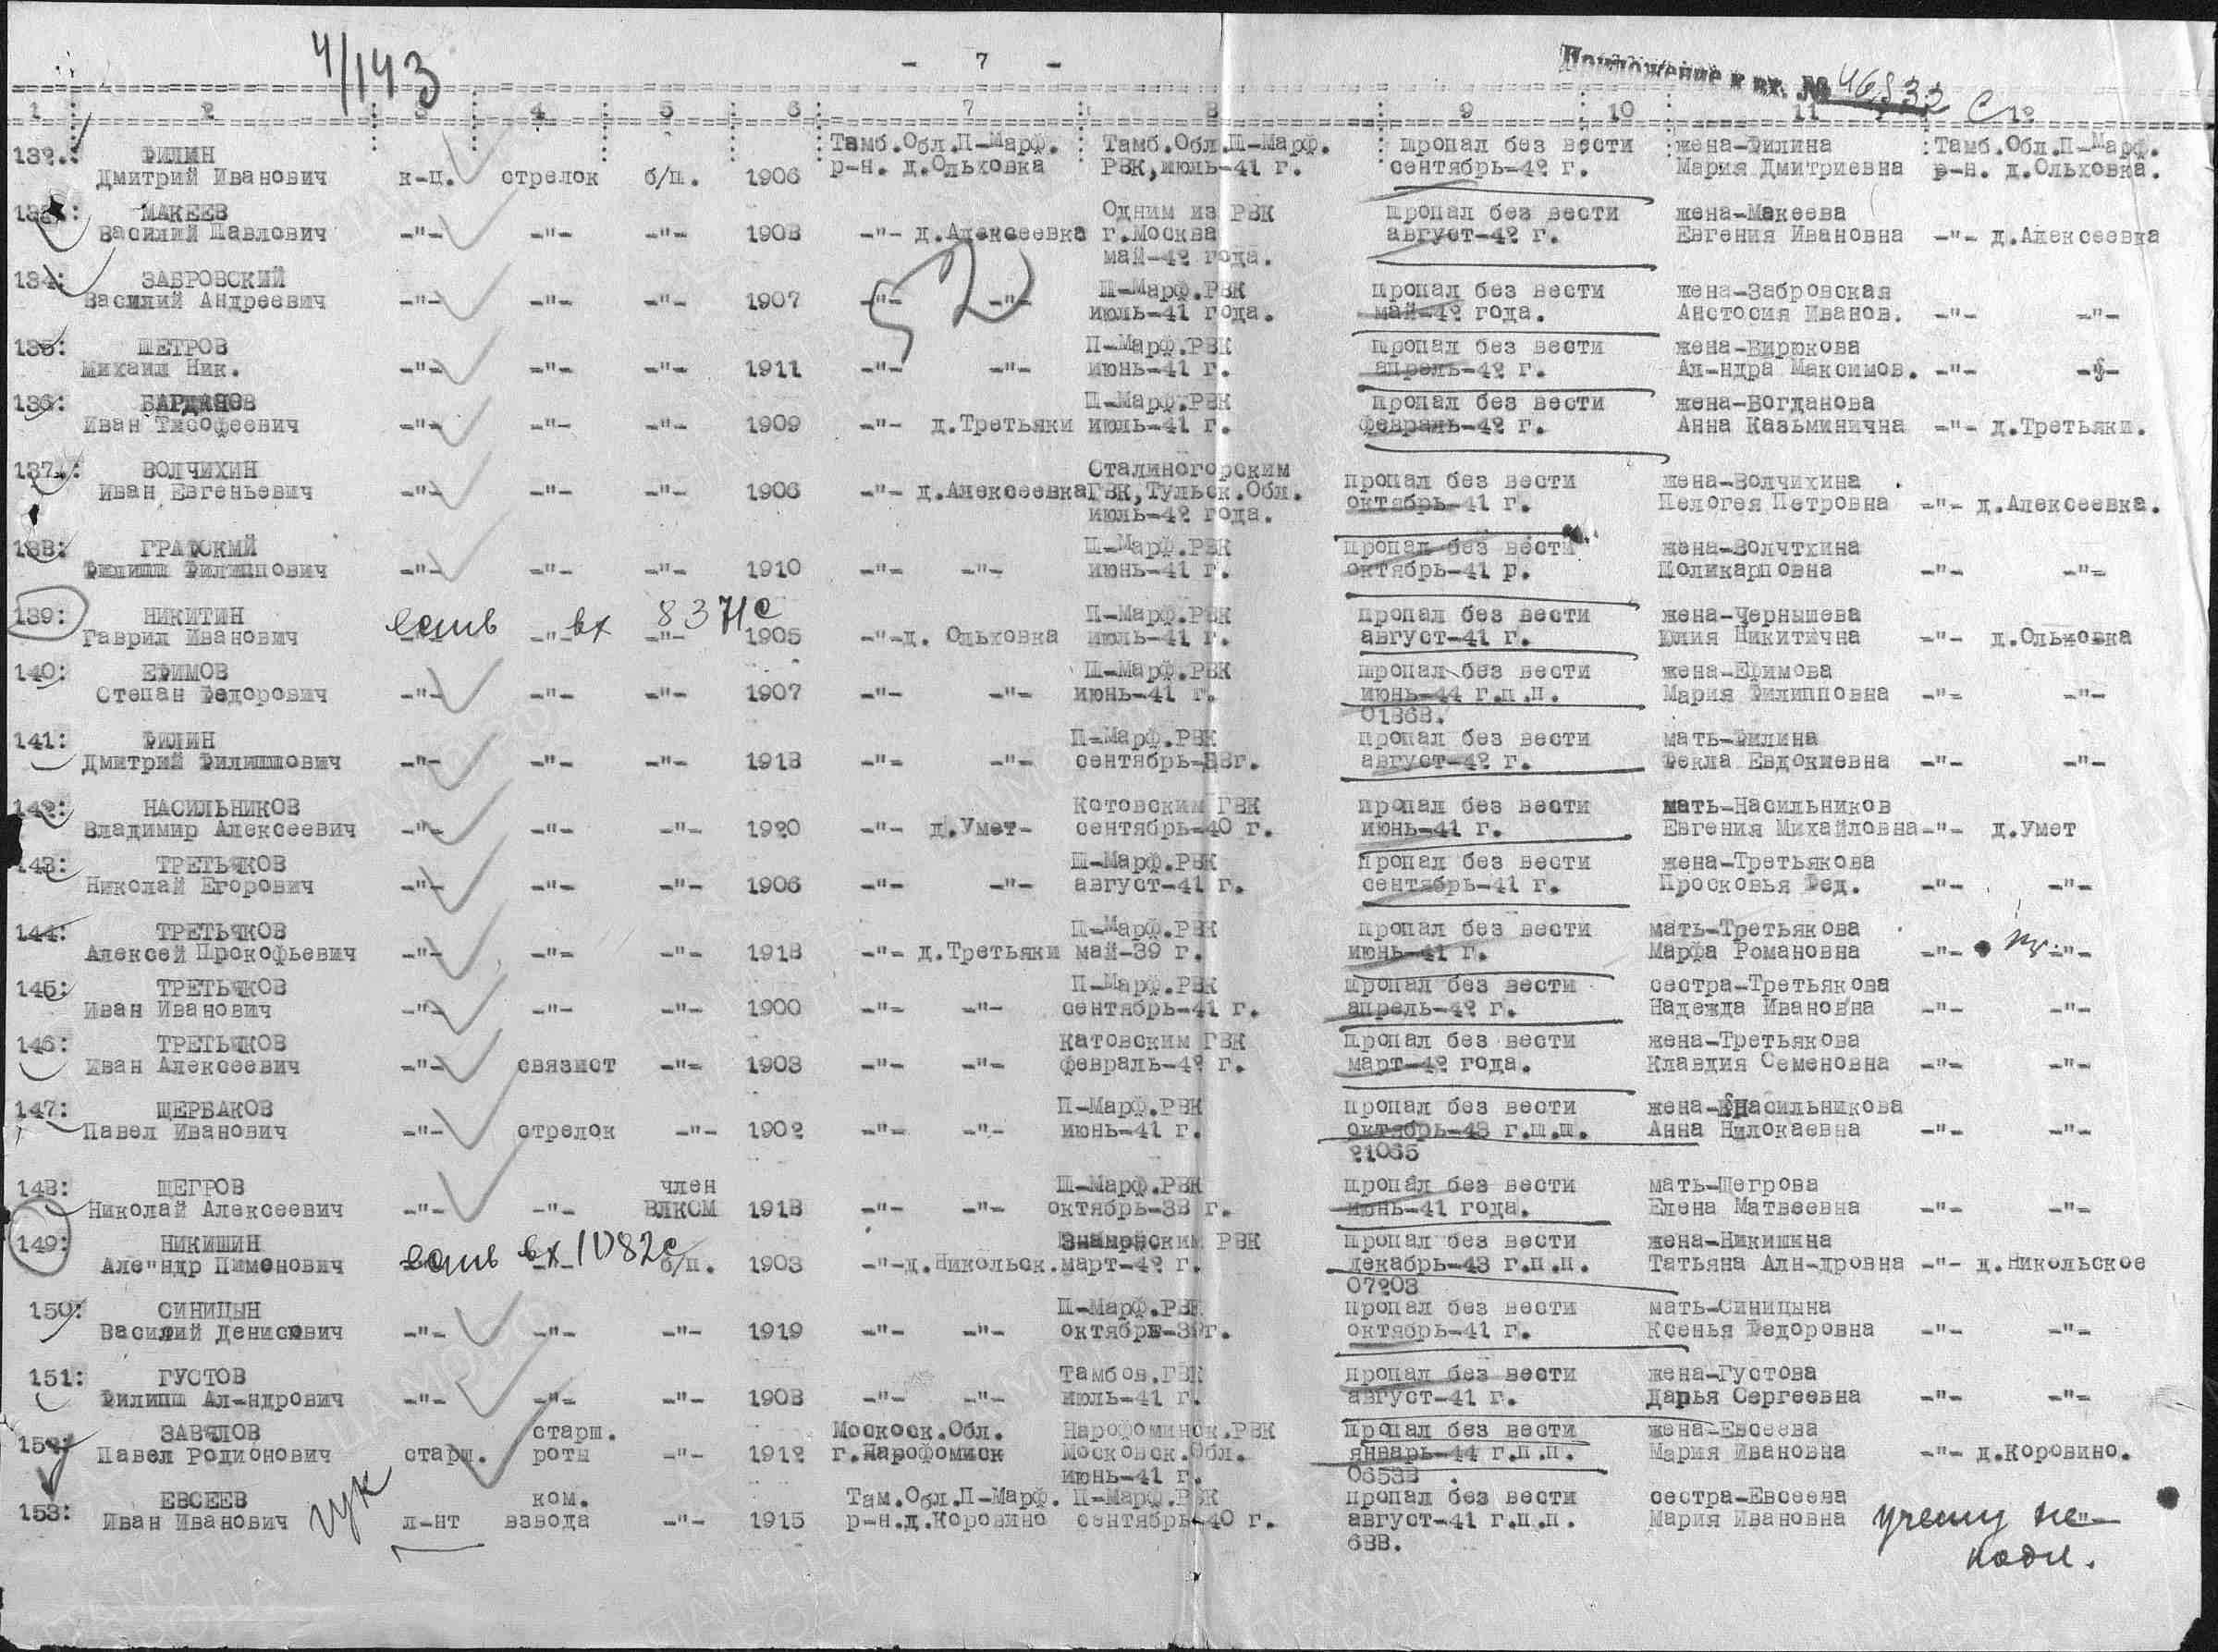 4/143
- 7 -
Приложение к вх. № 46832 с
1 2 3 4 5 6 7 8 9 10 11 12
132.: ФИЛИН Тамб.Обл.П-Марф. Тамб.Обл.П-Марф. пропал без вести жена-Филина Тамб.Обл.П-Марф.
Дмитрий Иванович к-ц. стрелок б/п. 1906 р-н. д.Ольховка РВК,июль-41 г. сентябрь-42 г. Мария Дмитриевна р-н. д.Ольховка.
133: МАКЕЕВ Одним из РВК пропал без вести жена-Макеева
Василий Павлович -"- -"- -"- 1908 -"- д.Алексеевка г.Москва август-42 г. Евгения Ивановна -"- д.Алексеевка
май-42 года.
134: ЗАБРОВСКИЙ П-Марф.РВК пропал без вести жена-Забровская
Василий Андреевич -"- -"- -"- 1907 -"- -"- июль-41 года. май-42 года. Анстосия Иванов. -"- -"-
52
135: ПЕТРОВ П-Марф.РВК пропал без вести жена-Бирюкова
Михаил Ник. -"- -"- -"- 1911 -"- -"- июнь-41 г. апрель-42 г. Ал-ндра Максимов. -"- -"-
136: П-Марф.РВК пропал без вести жена-Богданова
Иван Тимофеевич -"- -"- -"- 1909 -"- д.Третьяки июль-41 г. февраль-42 г. Анна Казьминична -"- д.Третьяки.
137.: ВОЛЧИХИН Сталиногорским пропал без вести жена-Волчихина
Иван Евгеньевич -"- -"- -"- 1906 -"- д.Алексеевка ГВК,Тульск.Обл. октябрь-41 г. Пелогея Петровна -"- д.Алексеевка.
июль-42 года.
138: П-Марф.РВК пропал без вести жена-Волчтхина
Филипп Филиппович -"- -"- -"- 1910 -"- -"- июнь-41 г. октябрь-41 р. Поликарповна -"- -"-
139: НИКИТИН есть вх 8371с П-Марф.РВК пропал без вести жена-Чернышева
Гаврил Иванович -"- -"- 1905 -"-д. Ольховка июль-41 г. август-41 г. Юлия Никитична -"- д.Ольховка
140: ЕФИМОВ П-Марф.РВК пропал без вести жена-Ефимова
Степан Федорович -"- -"- -"- 1907 -"- -"- июнь-41 г. июнь-44 г.п.п. Мария Филипповна -"- -"-
01868.
141: ФИЛИН П-Марф.РВК пропал без вести мать-Филина
Дмитрий Филиппович -"- -"- -"- 1918 -"- -"- сентябрь-38г. август-42 г. Фекла Евдокиевна -"- -"-
142: НАСИЛЬНИКОВ Котовским ГВК пропал без вести мать-Насильников
Владимир Алексеевич -"- -"- -"- 1920 -"- д.Умет- сентябрь-40 г. июнь-41 г. Евгения Михайловна-"- д.Умет
143: ТРЕТЬЯКОВ П-Марф.РВК пропал без вести жена-Третьякова
Николай Егорович -"- -"- -"- 1906 -"- -"- август-41 г. сентябрь-41 г. Просковья Фед. -"- -"-
144: ТРЕТЬЯКОВ П-Марф.РВК пропал без вести мать-Третьякова
Алексей Прокофьевич -"- -"- -"- 1918 -"- д.Третьяки май-39 г. июнь-41 г. Марфа Романовна -"- -"-
145: ТРЕТЬЯКОВ П-Марф.РВК пропал без вести сестра-Третьякова
Иван Иванович -"- -"- -"- 1900 -"- -"- сентябрь-41 г. апрель-42 г. Надежда Ивановна -"- -"-
146: ТРЕТЬЯКОВ Катовским ГВК пропал без вести жена-Третьякова
Иван Алексеевич -"- связист -"- 1903 -"- -"- февраль-42 г. март-42 года. Клавдия Семеновна -"- -"-
147: ЩЕРБАКОВ П-Марф.РВК пропал без вести жена-Насильникова
Павел Иванович -"- стрелок -"- 1902 -"- -"- июнь-41 г. октябрь-43 г.п.п. Анна Нилокаевна -"- -"-
21065
148: ЩЕГРОВ член П-Марф.РВК пропал без вести мать-Щегрова
Николай Алексеевич -"- -"- ВЛКСМ 1918 -"- -"- октябрь-38 г. июнь-41 года. Елена Матвеевна -"- -"-
149: НИКИШИН есть вх 1082с РВК пропал без вести жена-Никишина
Але"ндр Пименович -"- б/п. 1903 -"-д.Никольск. март-42 г. декабрь-43 г.п.п. Татьяна Алн-дровна -"- д.Никольское
07203
150: СИНИЦЫН П-Марф.РВК пропал без вести мать-Синицына
Василий Денисович -"- -"- -"- 1919 -"- -"- октябрь-39г. октябрь-41 г. Ксенья Федоровна -"- -"-
151: ГУСТОВ Тамбов.ГВК пропал без вести жена-Густова
Филипп Ал-ндрович -"- -"- -"- 1908 -"- -"- июль-41 г. август-41 г. Дарья Сергеевна -"- -"-
152: ЗАВЯЛОВ старш. Москоск.Обл. Нарофоминск.РВК пропал без вести жена-Евсеева
Павел Родионович старш. роты -"- 1912 г.Нарофомиск Московск.Обл. январь-44 г.п.п. Мария Ивановна -"- д.Коровино.
июнь-41 г. 06538
153: ЕВСЕЕВ гук ком. Там.Обл.П-Марф. П-Марф.РВК пропал без вести сестра-Евсеева
Иван Иванович л-нт взвода -"- 1915 р-н.д.Коровино сентябрь-40 г. август-41 г.п.п. Мария Ивановна учету не
688. подл.